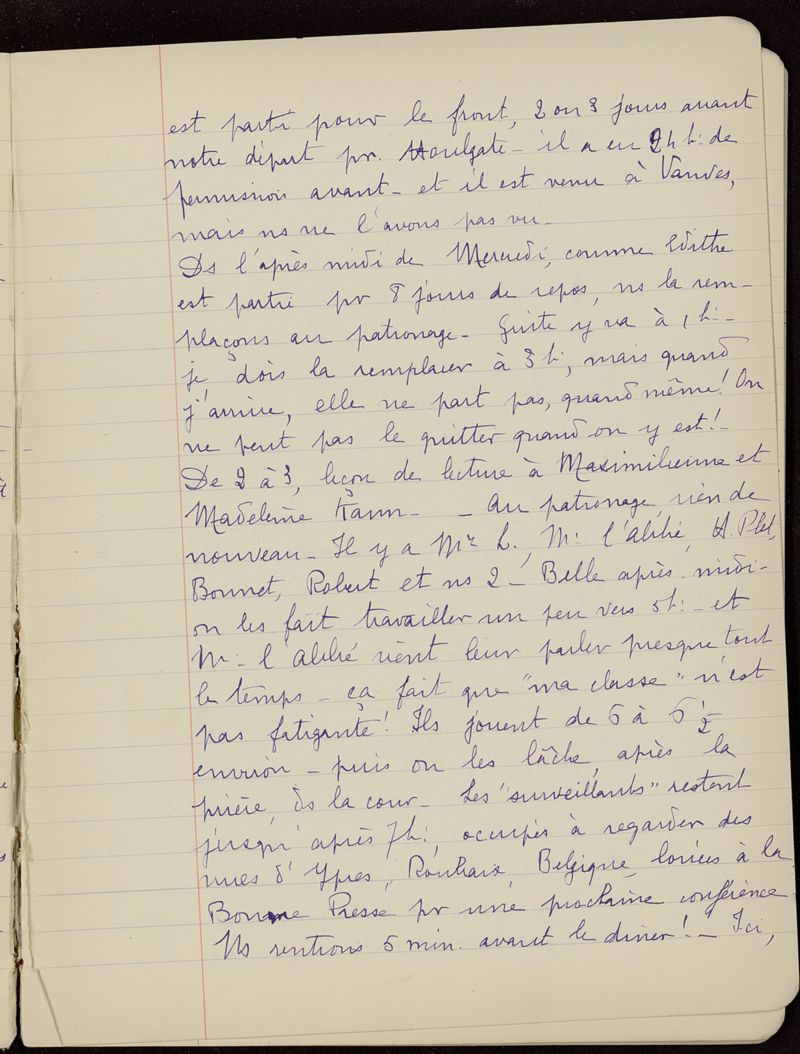 est parti pour le front, 2 ou 3 jours avant
notre départ pr. Houlgate - il a eu 24 h: de
permission avant - et il est venu à Vanves,
mais ns ne l'avons pas vu -
Ds l'après midi de Mercredi, comme Edithe
est partie pr 8 jours de repos, ns la rem-
plaçons au patronage - Guite y va à 1 h: -
je dois la remplacer à 3 h:, mais quand
j'arrive, elle ne part pas, quand même! On
ne peut pas le quitter quand on y est! -
De 2 à 3, leçon de lecture à Maximilienne et
Madeleine Kann - - Au patronage, rien de
nouveau - Il y a Mr L., Mr l'abbé, H. Plet,
Bonnet, Robert et ns 2 - Belle après-midi -
on les fait travailler un peu vers 5h: - et
Mr l'abbé vient leur parler presque tout
le temps - ça fait que "ma classe" n'est
pas fatigante! Ils jouent de 6 à 6 1/2
environ - puis on les lâche, après la
prière, ds la cour - Les "surveillants" restent
jusqu'après 7h:, occupés à regarder des
vues d'Ypres, Roubaix, Belgique, louées à la
Bonne Presse pr une prochaine conférence -
Ns rentrons 5 min. avant le dîner! - Ici,